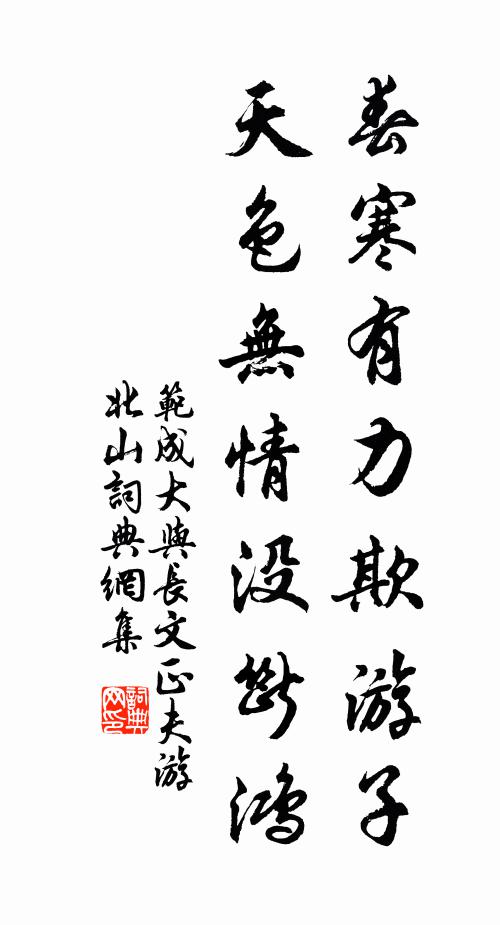 春寒有力欺游子
天色無情没斷鴻
範成大與長文正夫游
北山詞典網集
詞典网印